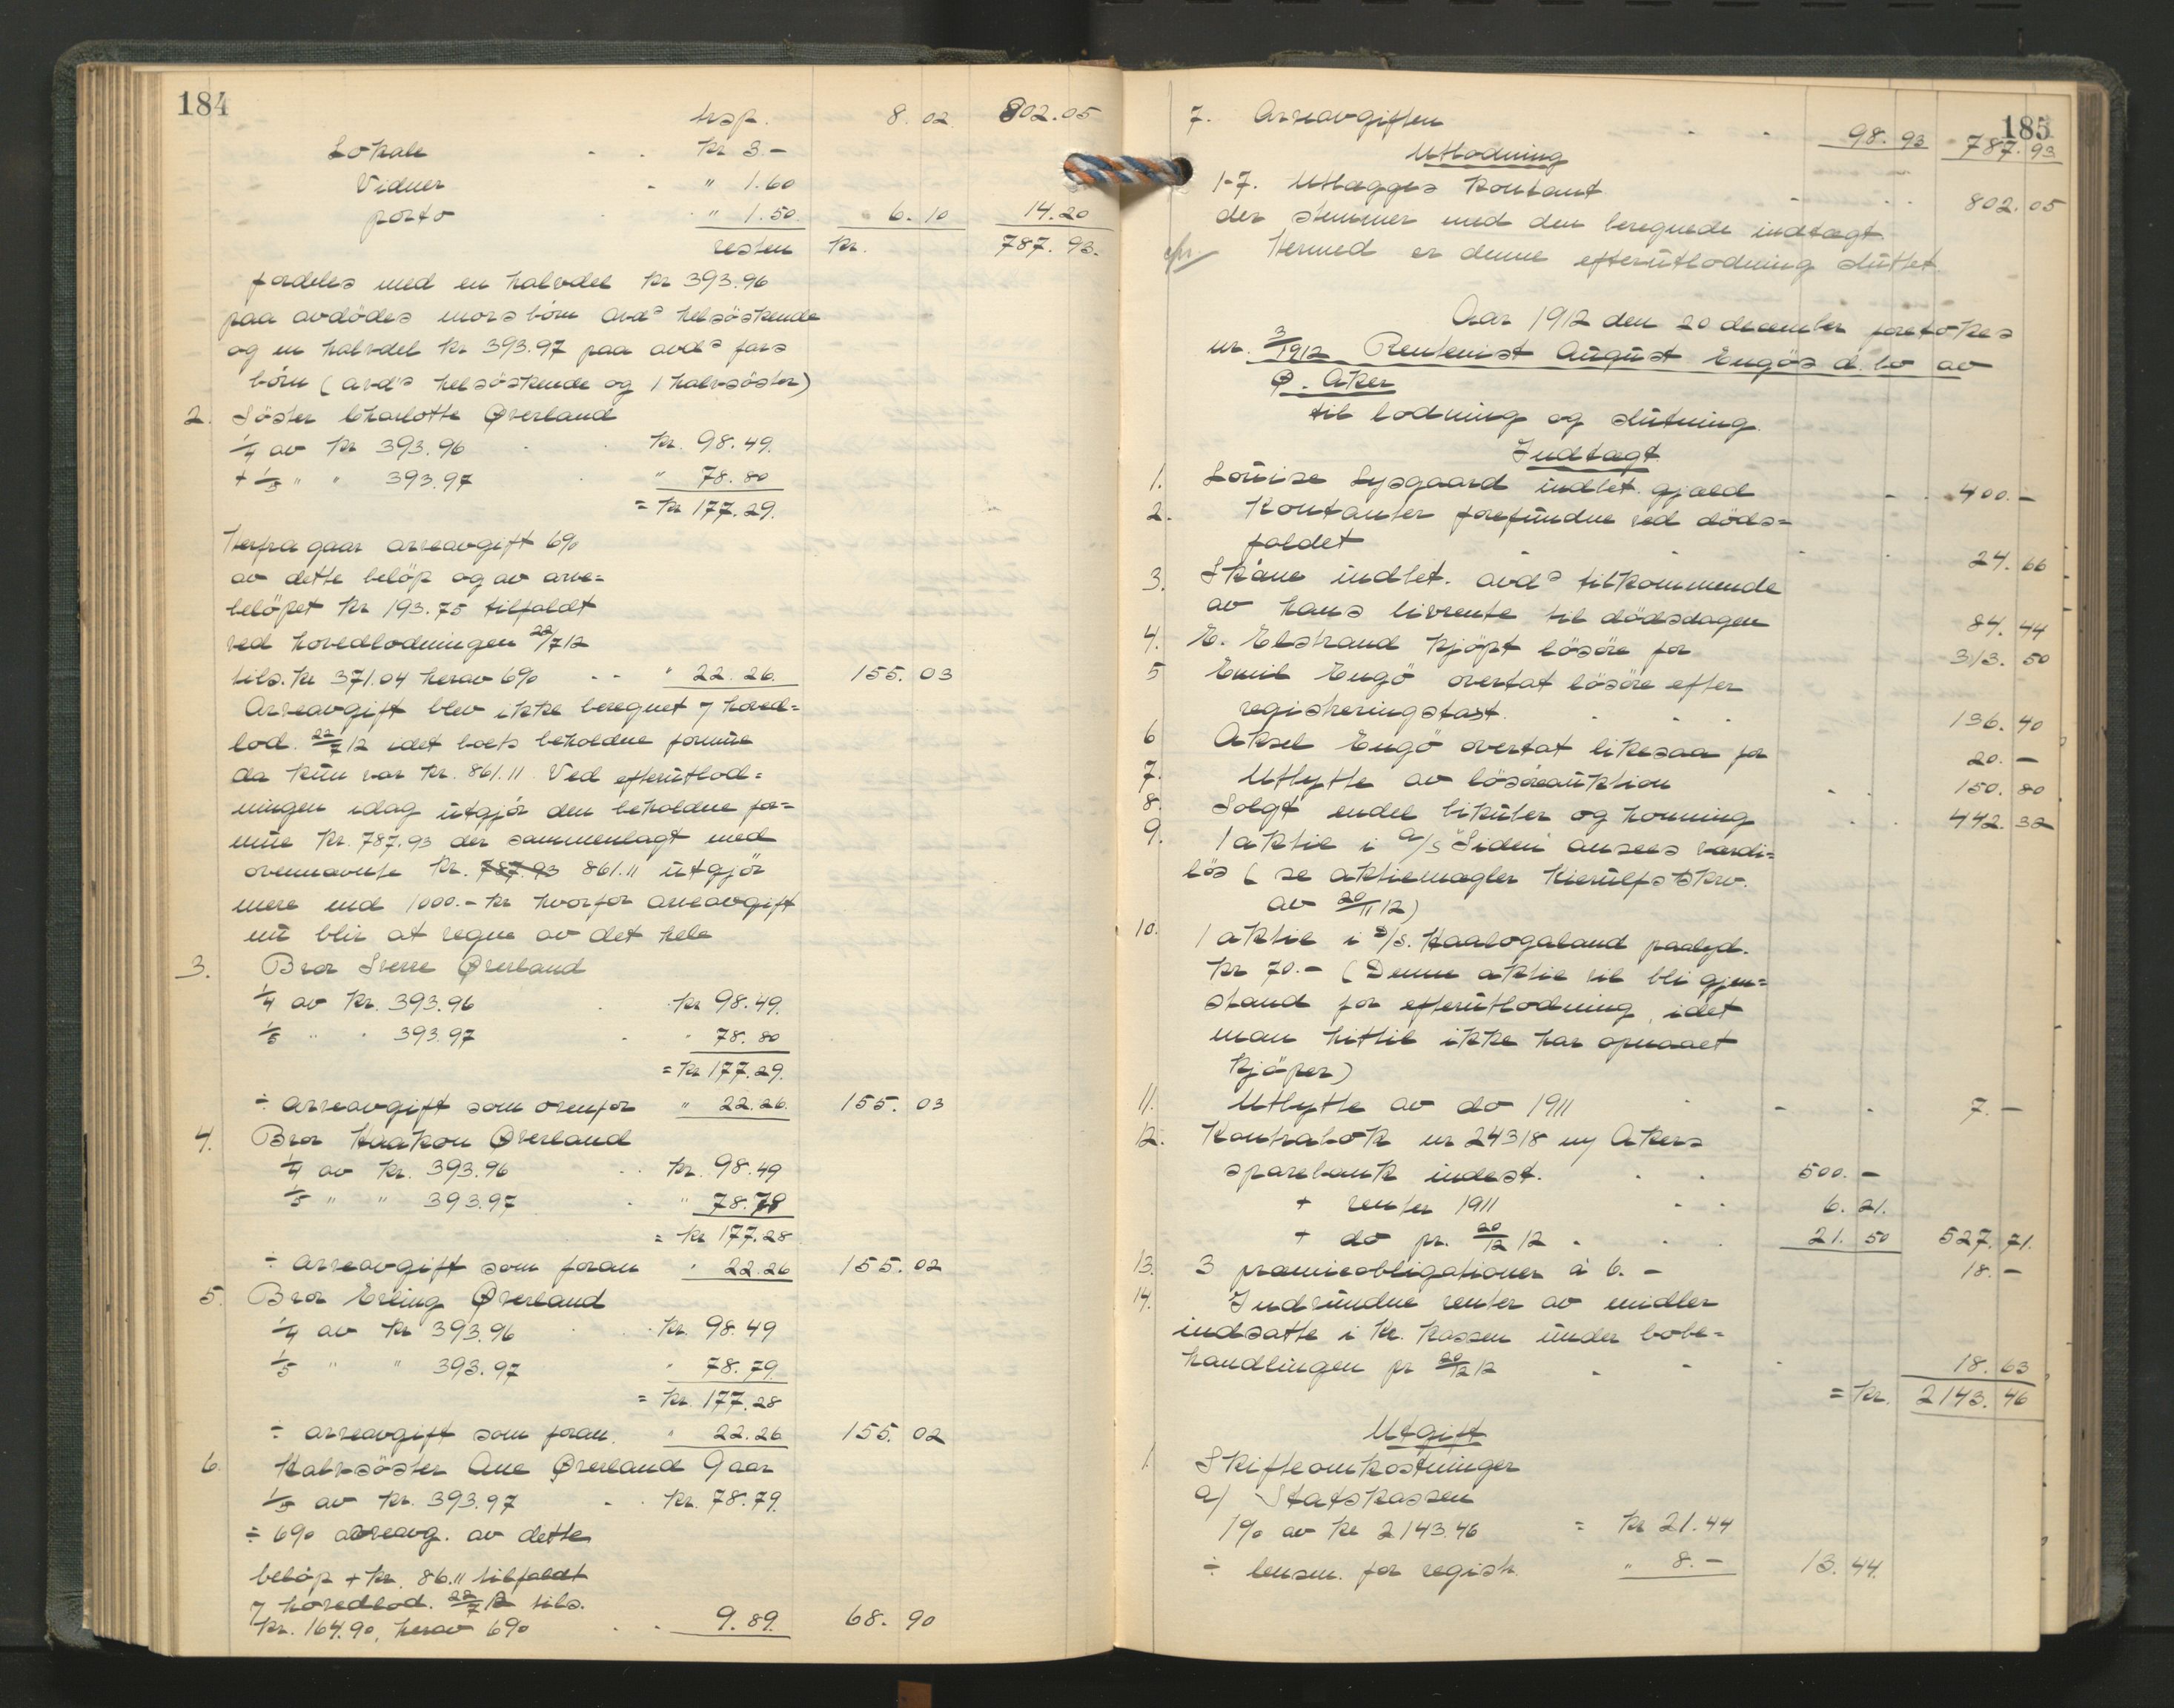 184
trsp. 8. 02 802.05
Lokale Kr 3.-
Vidner " 1.60
porto " 1.50 6. 10 14.20
resten Kr. 787. 93.
fordeles med en halvdel Kr 393.96
paa avdödes mors börn avds helsöskende
og en halvdel Kr 393.97 paa avds fars
börn (avd's helsöskende og 1 halvsöster)
2. Söster Charlotte Øverland
1/4 av Kr 393.96 Kr. 98.49.
+ 1/5 " " 393.97 " 78.80
= Kr 177.29.
Herfra gaar arveavgift 6%
av dette belöp og av arve=
belöpet Kr 193.75 tilfaldt
ved hovedlodningen 22/7 12
tils. Kr 371.04 herav 6% " 22.26. 155. 03
Arveavgift blev ikke beregnet v/ hoved=
lod. 22/7 12 idet boets beholdne formue
da kun var Kr. 861.11. Ved efterutlod=
ningen idag utgjör den beholdne for=
mue Kr. 787.93 der sammenlagt med
ovennævnte Kr. 787.93 861.11 utgjör
mere end 1000.- Kr hvorfor arveavgift
nu blir at regne av det hele
3. Bror Sverre Øverland
1/4 av Kr. 393.96 Kr 98.49.
1/5 " " 393.97 " 78.80
= Kr 177.29.
÷ arveavgift som ovenfor " 22.26. 155. 03
4. Bror Haakon Øverland
1/4 av Kr. 393.96 Kr. 98.49
1/5 " " 393.97 " 78.79
= Kr 177.28
÷ arveavgift som foran " 22.26 155. 02
5. Bror Erling Øverland
1/4 av Kr 393.96 Kr. 98.49
1/5 " " 393.97 " 78.79.
= Kr. 177.28
÷ arveavgift som foran. " 22.26 155. 02
6. Halvsöster Ane Øverland 9 aar
1/5 av Kr. 393.97 Kr. 78.79.
÷ 6% arveavg. av dette
belöp + Kr. 86.11 tilfaldt
v/ hovedlod. 22/7 12 tils.
Kr. 164.90, herav 6% 9.89. 68. 90
185
7. Arveavgiften 98. 93 787. 93
Utlodning
1-7. Utlægges kontant 802. 05
der stemmer med den beregnede indtægt.
Hermed er denne efterutlodning sluttet.
Aar 1912 den 20 december foretokes
nr. 3/1912 Rentenist August Engös d. bo av
Ø. Aker
til lodning og slutning.
Indtægt
1. Louise Lysgaard indbet. gjæld 400. -
2. Kontanter forefundne ved döds=
faldet 24. 66
3. Skåne indbet. avds tilkommende
av hans livrente til dödsdagen 84. 44
4. E. Elstrand kjöpt lösöre for 313. 50
5 Emil Engö overtat lösöre efter
registreringstakst. 136. 40
6 Aksel Engö overtat likesaa for 20. -
7. Utbytte av lösöreauktion 150. 80
8. Solgt endel bikuber og honning 442. 32
9. 1 aktie i A/S "Siden" ansees værdi=
lös (se aktiemægler Kierulfs skrv.
av 20/11 12)
10. 1 aktie i A/S. Haalogaland paalyd.
Kr 70.- (Denne aktie vil bli gjen=
stand for efterutlodning, idet
man hittil ikke har opnaaet
kjöper)
11. Utbytte av do 1911 7. -
12. Kontrabok nr 24318 v/ Akers
sparebank indest. 500. -
+ renter 1911 6. 21.
+ do pr. 20/12 12 21. 50 527. 71.
13. 3 præmieobligationer à 6.- 18. -
14. Indvundne renter av midler
indsatte i Kr. kassen under bobe=
handlingen pr 20/12 12 18. 63
= Kr. 2143. 46
Utgift
1. Skifteomkostninger
a) Statskassen
1% av Kr 2143.46 = Kr 21.44
÷ lensm. for registr. " 8.- 13. 44.